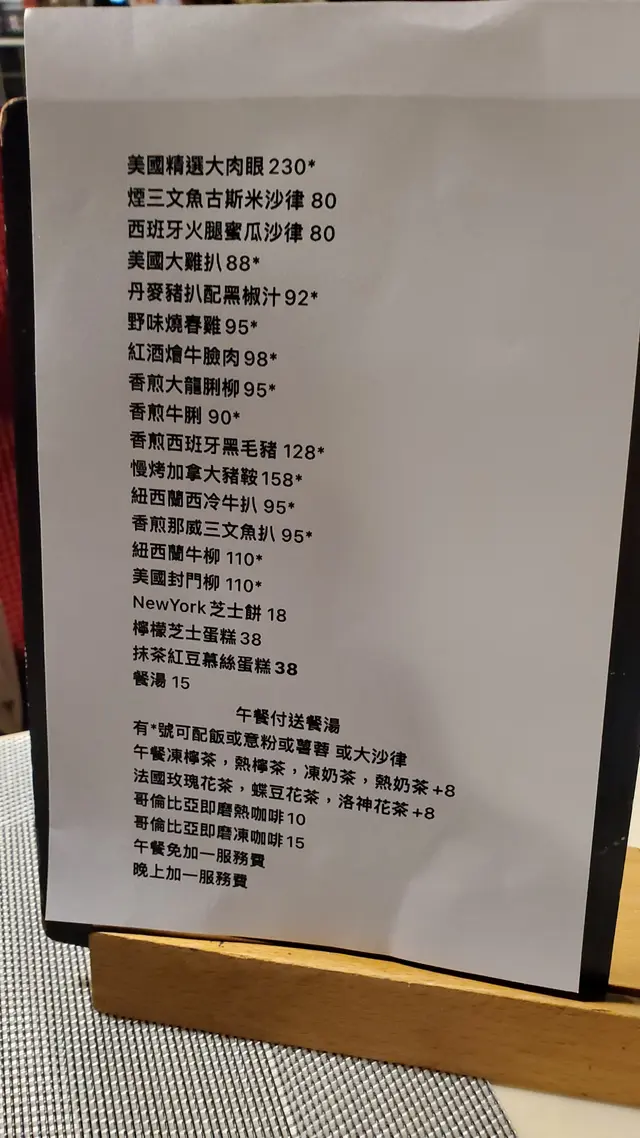 美國精選大肉眼 230*
煙三文魚古斯米沙律 80
西班牙火腿蜜瓜沙律 80
美國大雞扒 88*
丹麥豬扒配黑椒汁 92*
野味燒春雞 95*
紅酒燴牛臉肉 98*
香煎大龍脷柳 95*
香煎牛脷 90*
香煎西班牙黑毛豬 128*
慢烤加拿大豬鞍 158*
紐西蘭西冷牛扒 95*
香煎那威三文魚扒 95*
紐西蘭牛柳 110*
美國封門柳 110*
NewYork芝士餅 18
檸檬芝士蛋糕 38
抹茶紅豆慕絲蛋糕 38
餐湯 15
午餐付送餐湯
有*號可配飯或意粉或薯蓉 或大沙律
午餐凍檸茶，熱檸茶，凍奶茶，熱奶茶+8
法國玫瑰花茶，蝶豆花茶，洛神花茶+8
哥倫比亞即磨熱咖啡10
哥倫比亞即磨凍咖啡15
午餐免加一服務費
晚上加一服務費